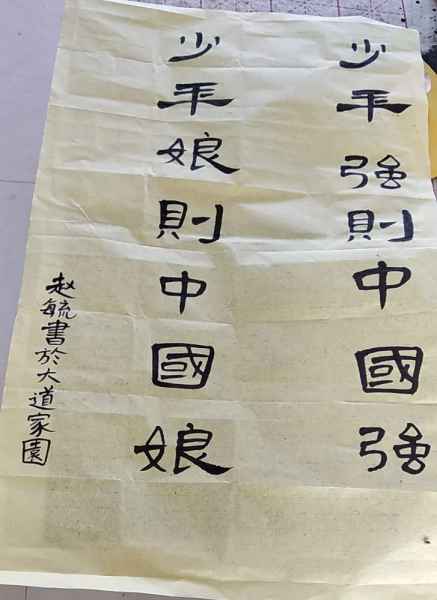 少年強則中國強
少年娘則中國娘
赵毓書於大道家園